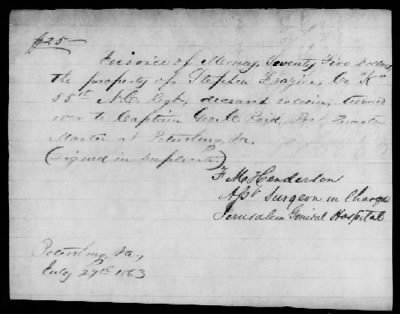 $25
Invoice of Money, Seventy Five Dollars
the property of Stephen Frazier, Co "K"
55th N.C. Regt, deceased soldier, turned
over to Captain Geo. C Reid, Quarter
Master at Petersburg, Va.
(Signed in Duplicate)
F. M. Henderson
Asst Surgeon in Charge
General Hospital
Petersburg, Va.,
July 27th 1863